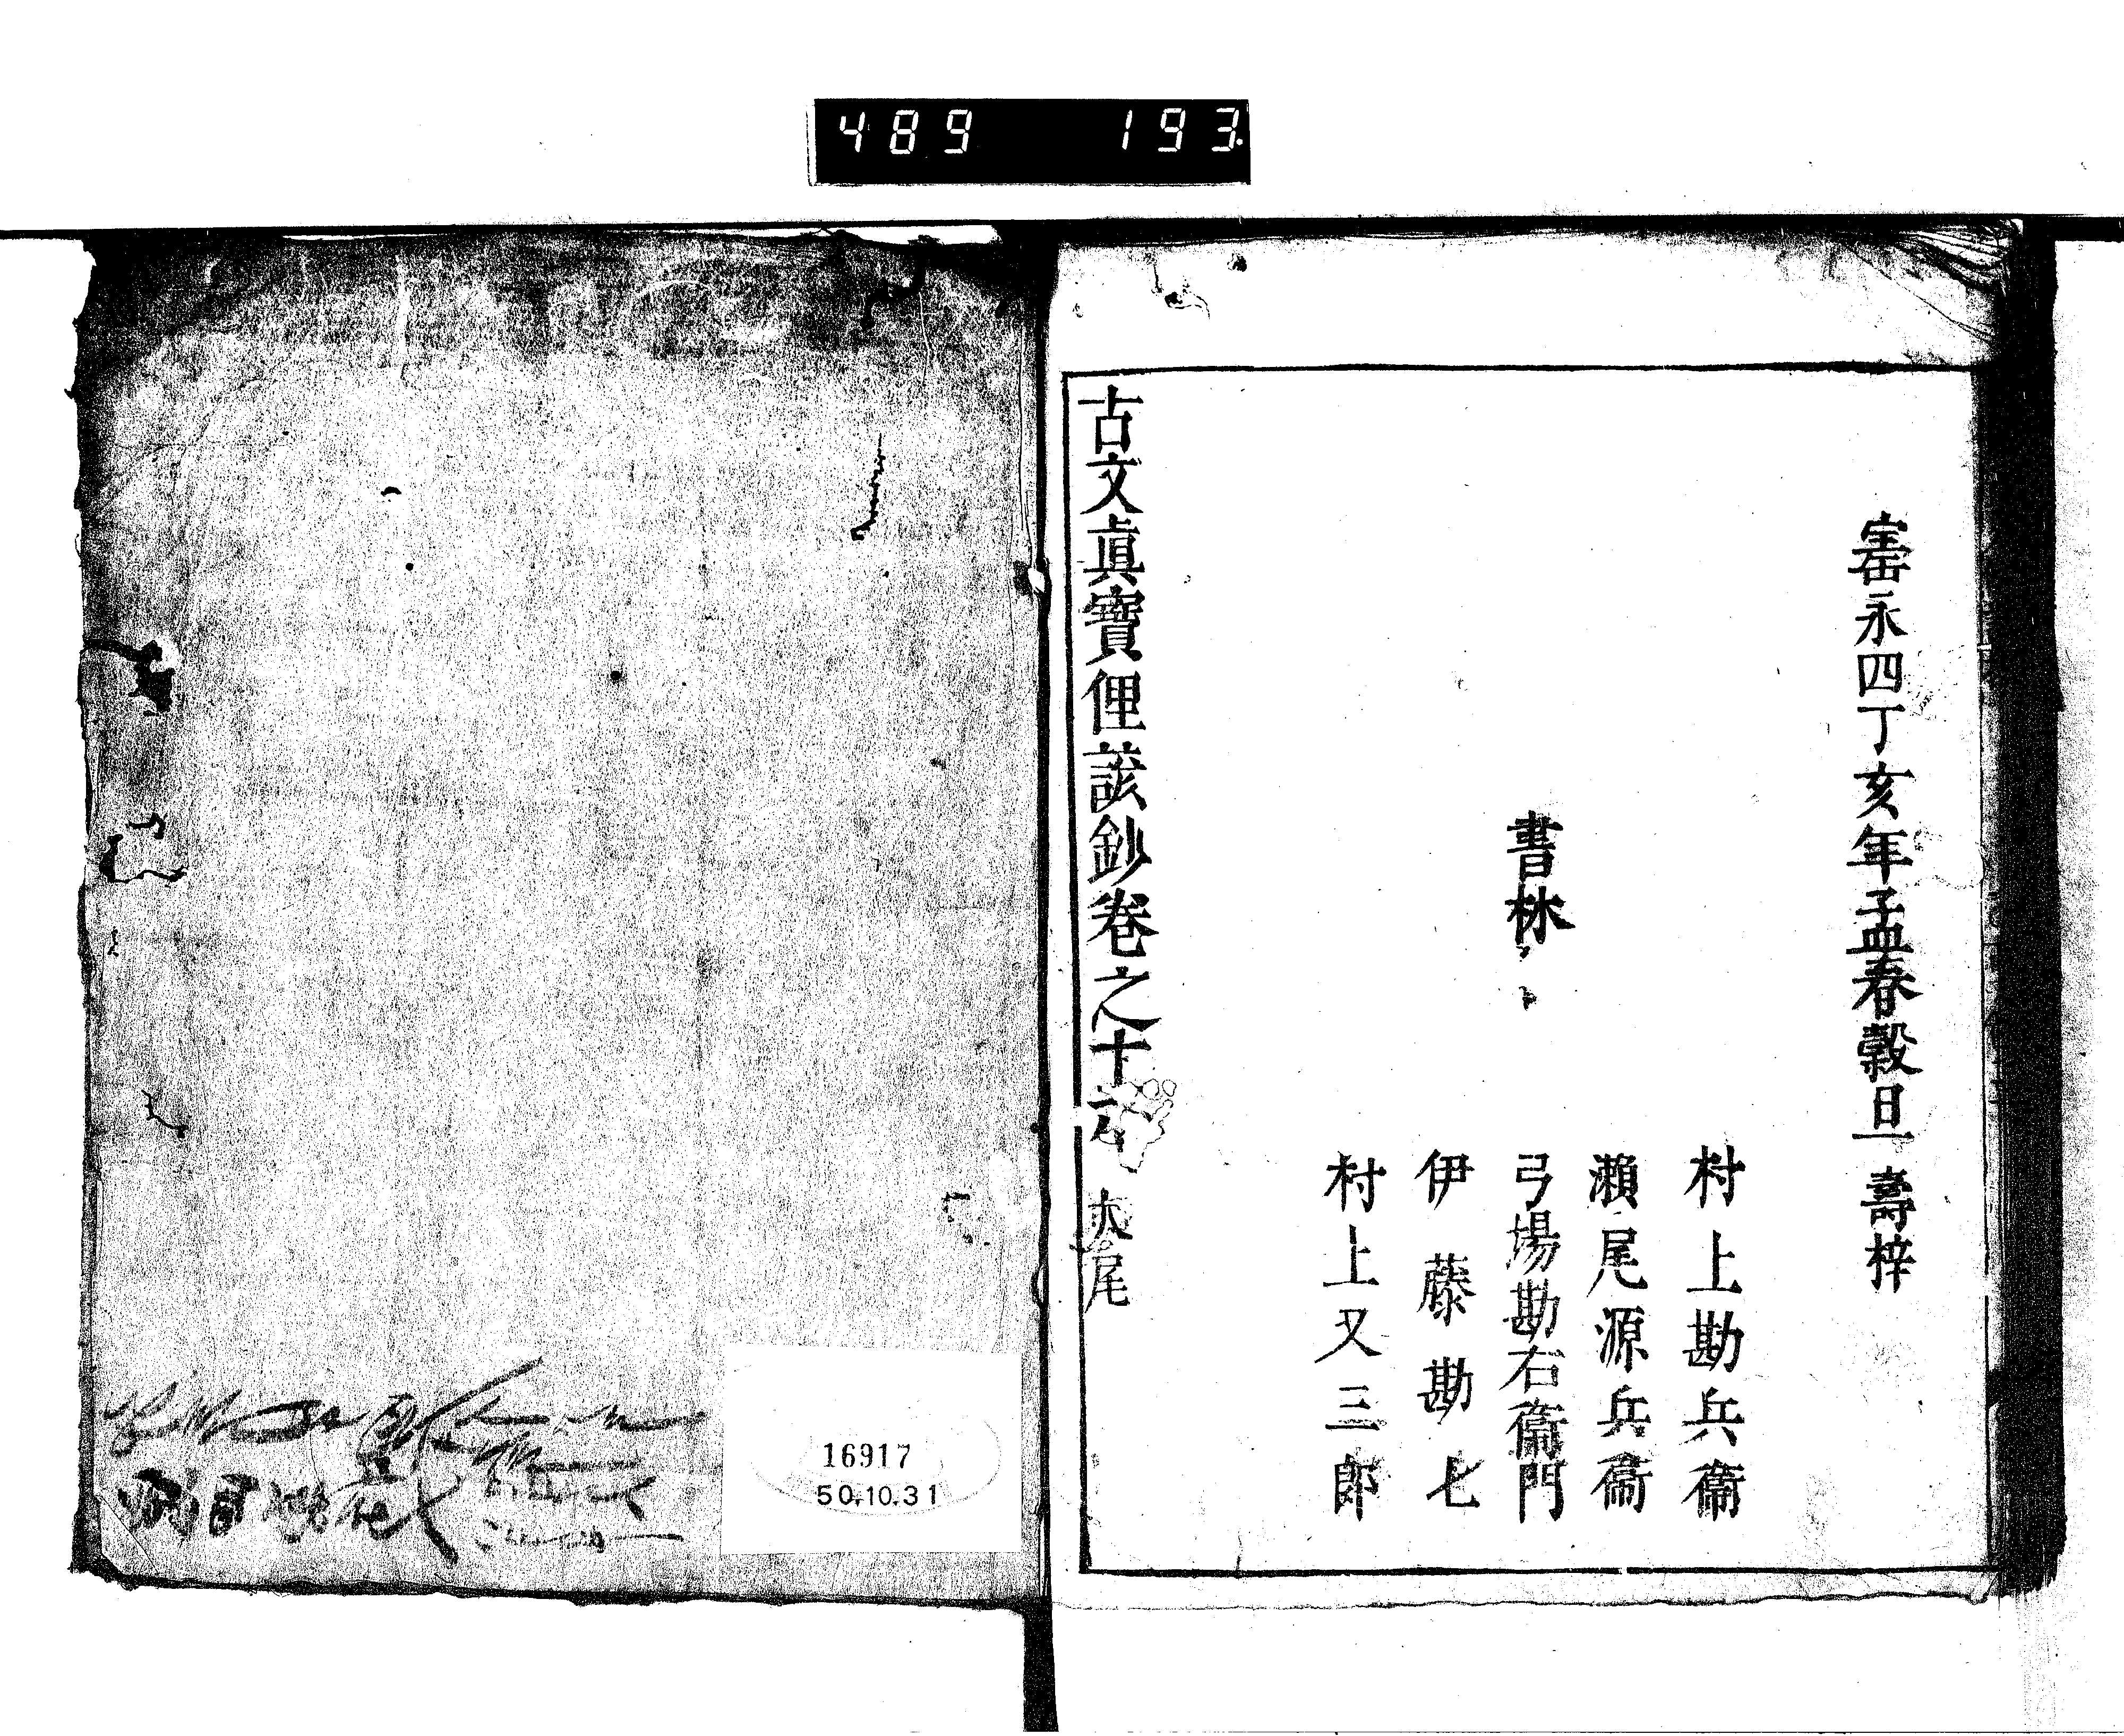 489 193
寚永四丁亥年孟春穀旦 壽梓
書林
村上勘兵衞
瀬尾源兵衞
弓場勘右衞門
伊藤勘七
村上又三郎
古文眞寶俚諺鈔卷之十六 大尾
16917
50.10.31